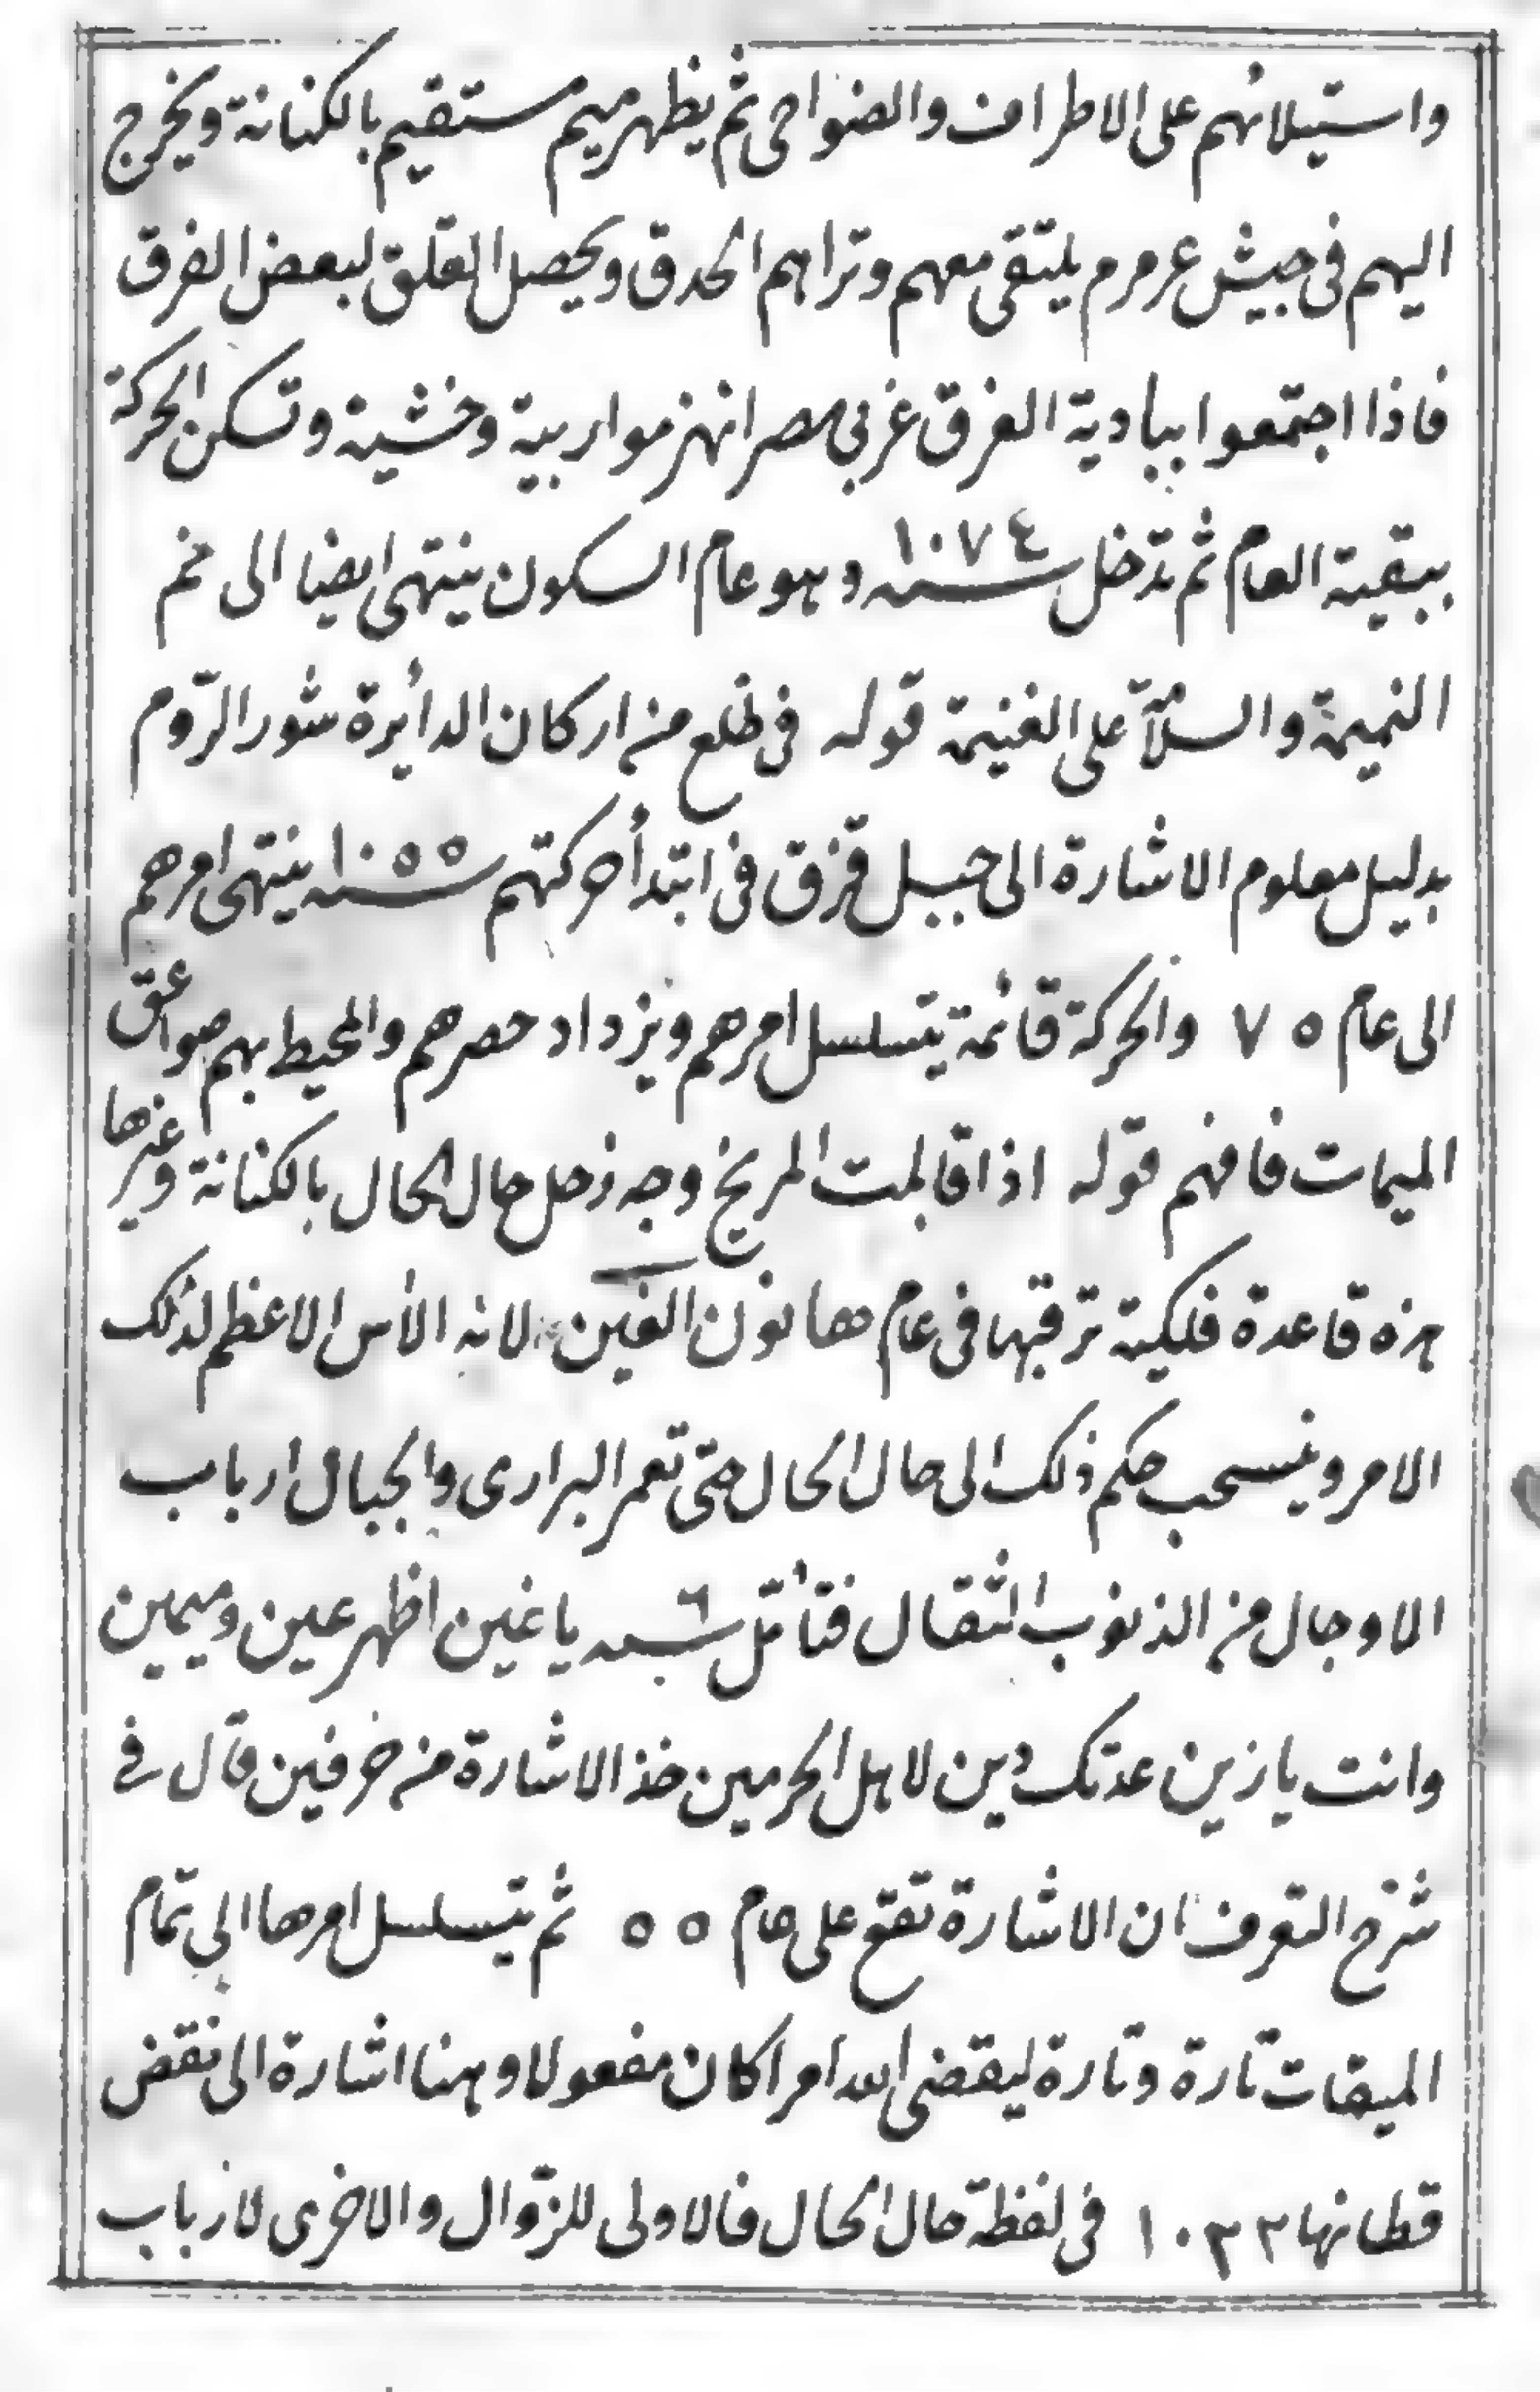 واستيلائهم على الاطراف والضواحى ثم يظهر ميم مستقيم بالكنانة ويخرج
اليهم فى جيش عرمرم يلتقى معهم وتراهم الحدق ويحصل القلق لبعض الفرق
فاذا اجتمعوا ببادية الغرق غربى مصر انهزموا ريبة وخشية وتسكن الحركة
ببقية العام ثم تدخل سنه ١٠٧٤ وهو عام السكون ينتهى ايضا الى ختم
النميمة والسلام على الغنيمة قوله فى ظلع من اركان الدائرة شور الروم
بدليل معلوم الاشارة الى جبل قزق فى ابتدأ حركتهم سنه ١٠٥٥ ينتهى امرهم
الى عام ٧٥ والحركة قائمة يتسلسل امرهم ويزداد حصرهم والمحيط بهم صواعق
الميمات فافهم قوله اذا قابلت المريخ وجه زحل حال الحال بالكنانة وغيرها
هذه قاعدة فلكية ترقبها فى عام ها نون الغين لانه الأس الاعظم لذلك
الامر وينسحب حكم ذلك الى حال الحال حتى تعمر البرارى والجبال ارباب
الاوجال من الذنوب الثقال فتأمل سنه ٦ يا غين اظهر عين وميمين
وانت يا زين عدتك دين لاهل الحرمين خذ الاشارة من حرفين قال فى
شرح التعرف ان الاشارة تقع على عام ٥٥ ثم يتسلسل امرها الى تمام
الميقات تارة وتارة ليقضى الله امرا كان مفعولا وهنا اشارة الى نقض
قطانها ١٠٣٣ فى لفظة حال الحال فالاولى للزوال والاخرى لارباب